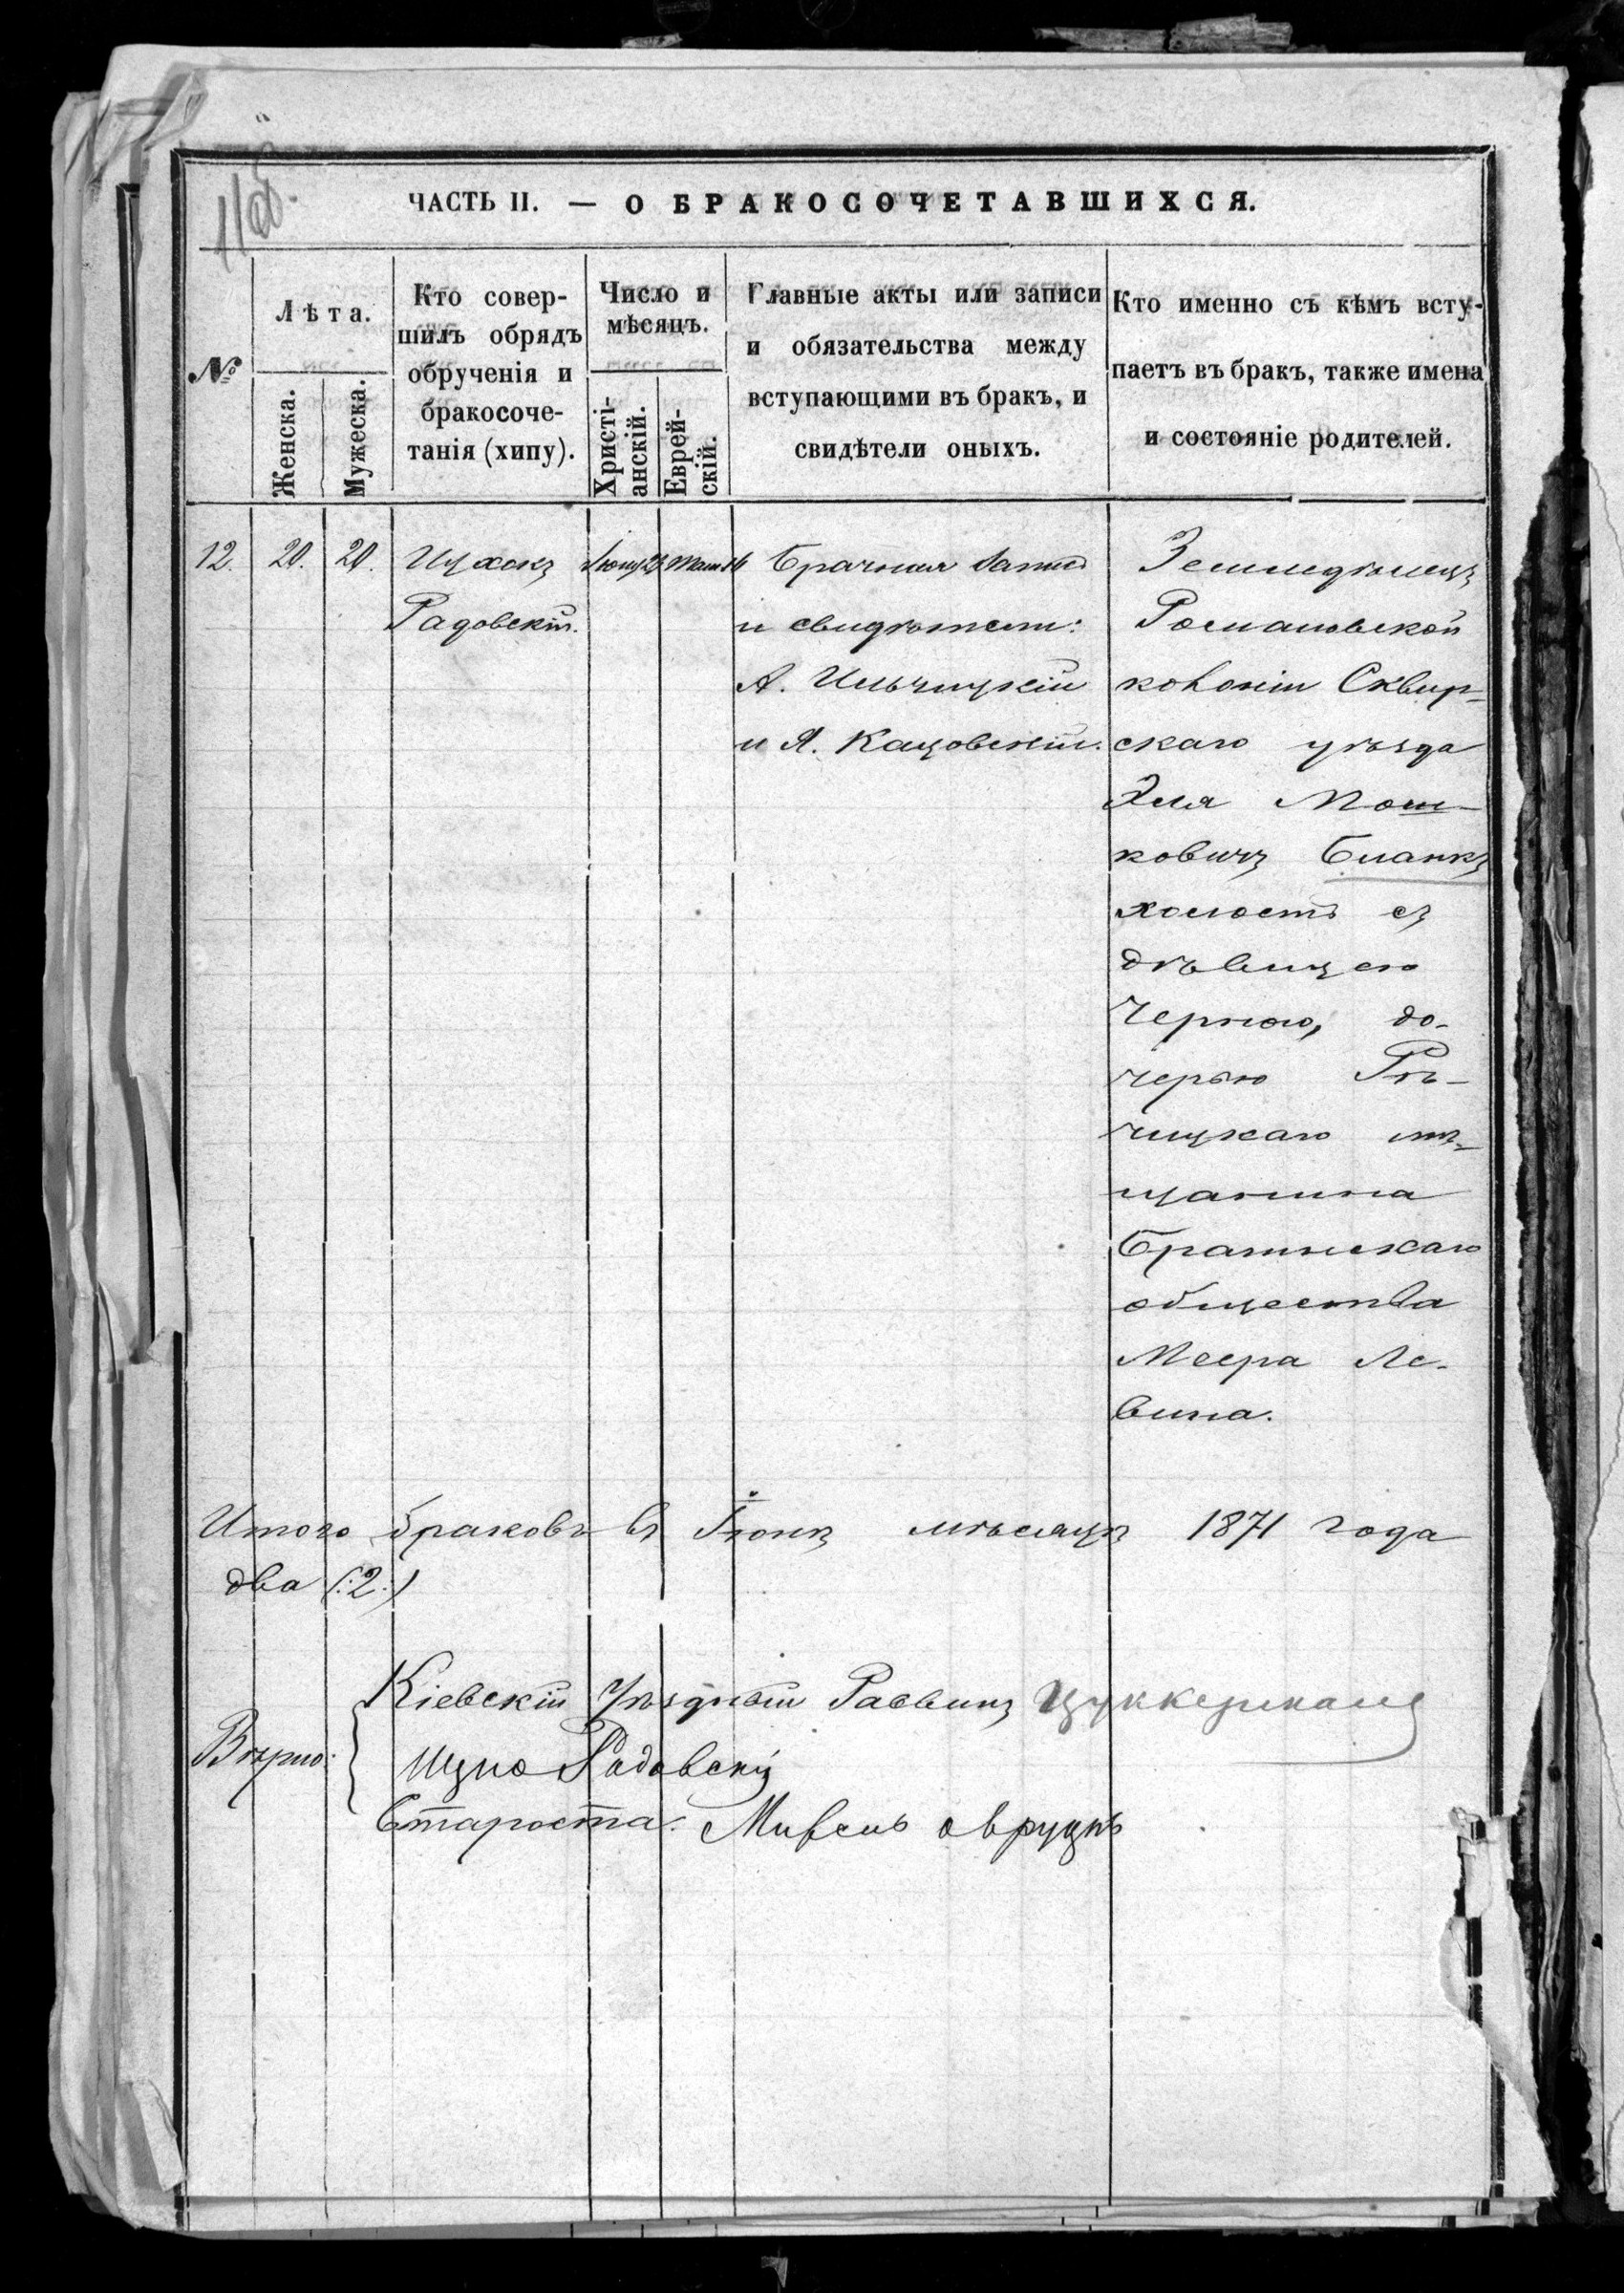 116 об.
ЧАСТЬ II. — О БРАКОСОЧЕТАВШИХСЯ.
№
Лѣта.
Женска.
Мужеска.
Кто совер-
шилъ обрядъ
обрученія и
бракосоче-
танія (хипу).
Число и
мѣсяцъ.
Христі-
анскій.
Еврей-
скій.
Главные акты или записи
и обязательства между
вступающими въ бракъ, и
свидѣтели оныхъ.
Кто именно съ кѣмъ всту-
паетъ въ бракъ, также имена
и состояніе родителей.
12. 20. 20.
Ицхокъ
Радовскій.
Брачная запись
и свидѣтели:
А. Ильчицкій
и Я. Кацовскій.
Земледѣлецъ
Романовской
колоніи Сквир-
скаго уѣзда
Эля Мош-
ковичъ Бланкъ
холостъ съ
дѣвицею
Черною, до-
черью Рѣ-
чицкаго мѣ-
щанина
Брагинскаго
общества
Меера Ле-
вина.
Итого браковъ въ Іюнѣ мѣсяцѣ 1871 года
два (:2:)
Вѣрно:
Кіевскій Уѣздный Раввинъ Цуккерманъ
Ицко Радовскій
Староста: